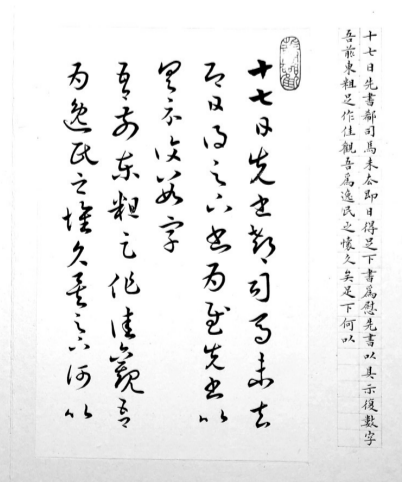 十七日先書郗司馬未去即日得足下書爲慰先書以具示復數字
吾前東粗足作佳觀吾爲逸民之懷久矣足下何以
十七日先書郗司馬未去
即日得足下書爲慰先書以
具示復數字
吾前東粗足作佳觀吾
爲逸民之懷久矣足下何以